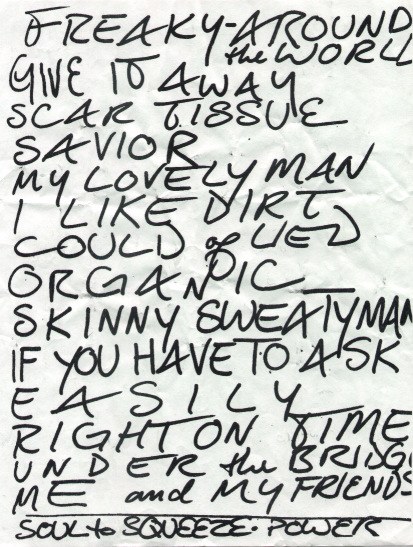 FREAKY-AROUND
the WORL
GIVE IT AWAY
SCAR TISSUE
SAVIOR
MY LOVELY MAN
I LIKE DIRT
COULD of LIED
ORGANIC
SKINNY SWEATY MAN
IF YOU HAVE TO ASK
EASILY
RIGHT ON TIME
UNDER the BRIDG
ME and MY FRIENDS
SOUL to SQUEEZE · POWER